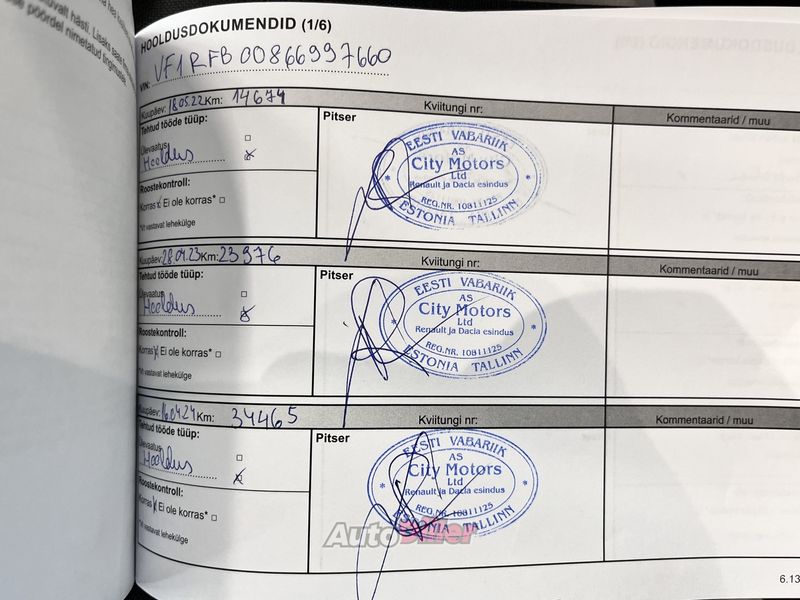 HOOLDUSDOKUMENDID (1/6)
VIN: VF1RFB00866997660
Kuupäev: 18.05.22 Km: 14674 Kviitungi nr: Kommentaarid / muu
Tehtud tööde tüüp: Pitser
Ülevaatus
Hooldus
Roostekontroll:
Korras Ei ole korras*
*Vt vastavat lehekülge
EESTI VABARIIK
AS
City Motors
Ltd
Renault ja Dacia esindus
REG.NR. 10811125
ESTONIA TALLINN
Kuupäev: 28.04.23 Km: 23976 Kviitungi nr: Kommentaarid / muu
Tehtud tööde tüüp: Pitser
Ülevaatus
Hooldus
Roostekontroll:
Korras Ei ole korras*
*Vt vastavat lehekülge
EESTI VABARIIK
AS
City Motors
Ltd
Renault ja Dacia esindus
REG.NR. 10811125
ESTONIA TALLINN
Kuupäev: 16.04.24 Km: 34465 Kviitungi nr: Kommentaarid / muu
Tehtud tööde tüüp: Pitser
Ülevaatus
Hooldus
Roostekontroll:
Korras Ei ole korras*
*Vt vastavat lehekülge
EESTI VABARIIK
AS
City Motors
Ltd
Renault ja Dacia esindus
REG.NR. 10811125
ESTONIA TALLINN
AutoDiiler
6.13